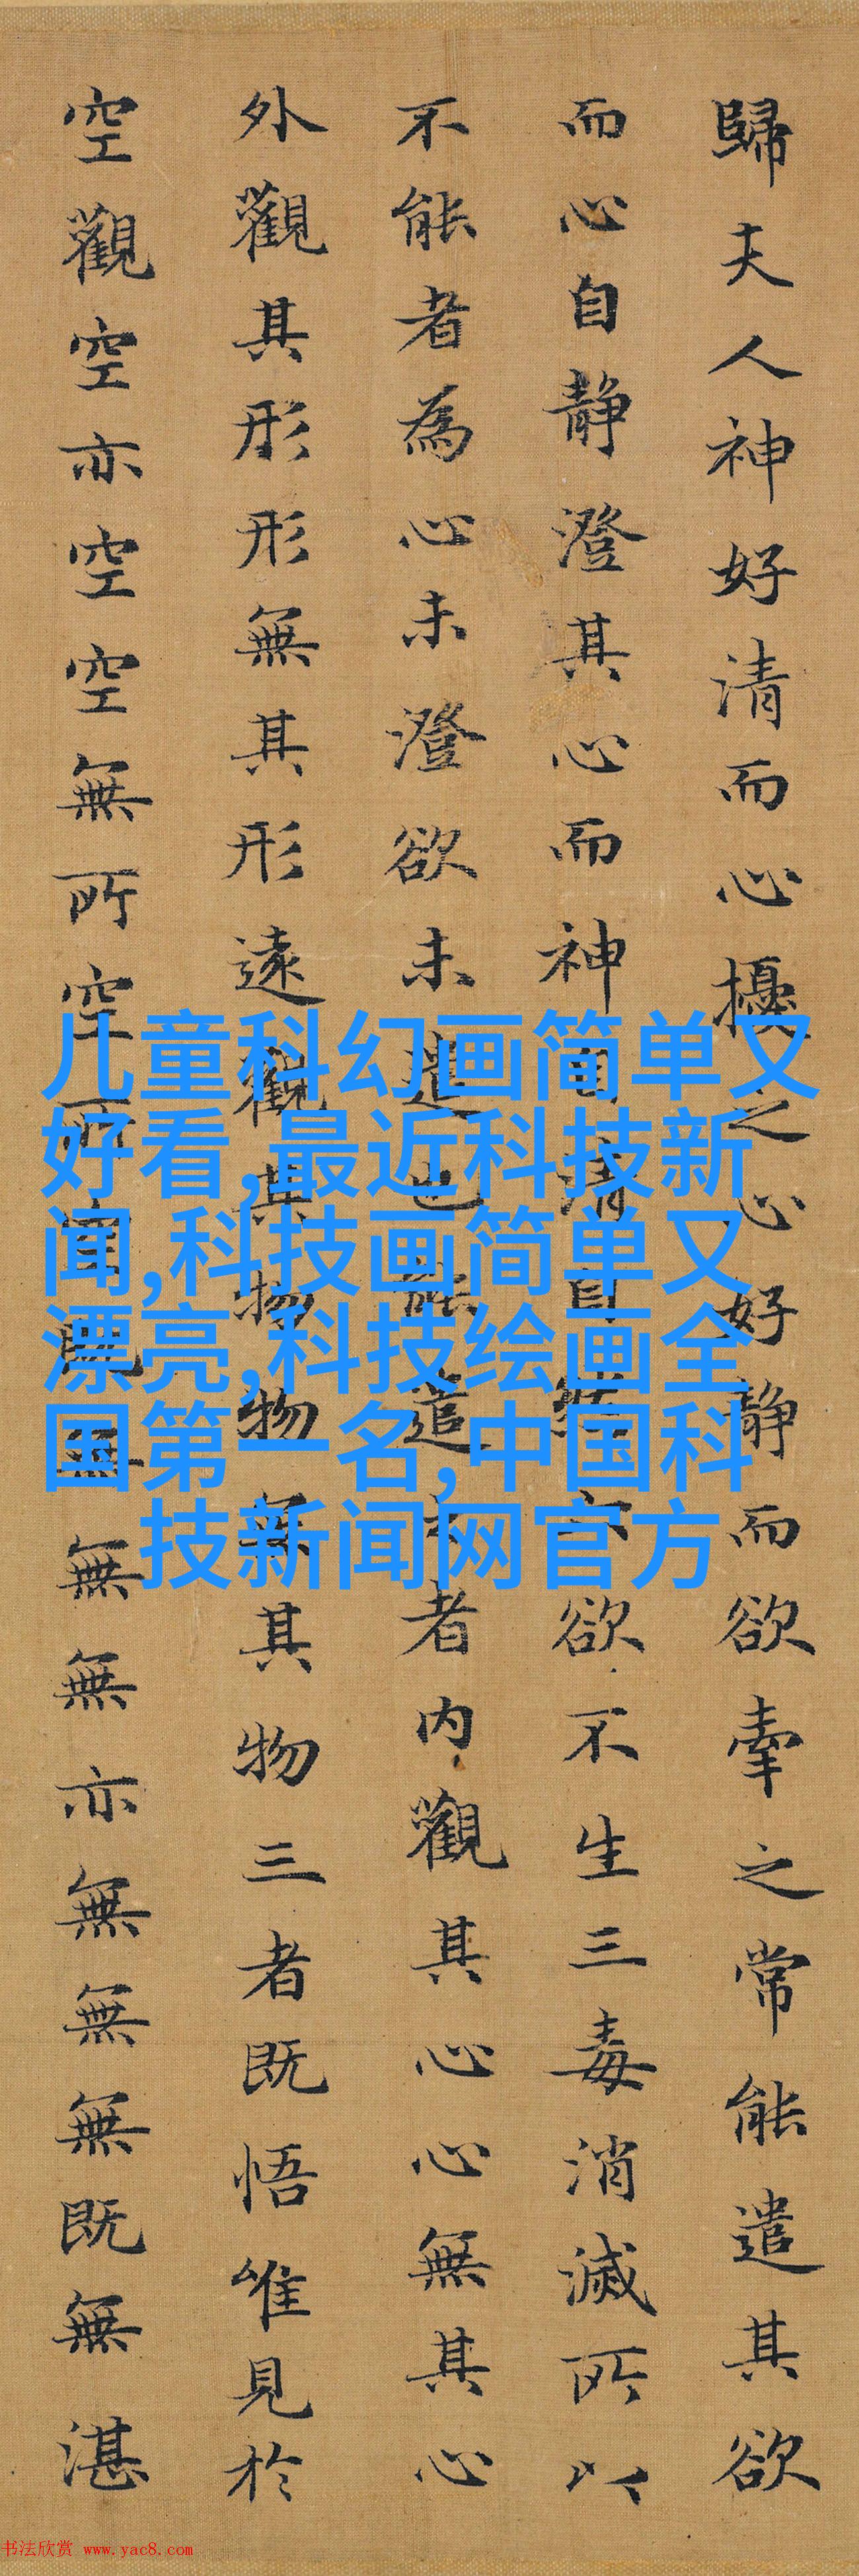 歸夫人神好清而心擾之心好静而欲牽之常能遣其欲
而心自静澄其心而神自清自然六欲不生三毒消滅所以
不能者為心未澄欲未遣也能遣之者内觀其心心無其心
外觀其形形無其形遠觀其物物無其物三者既悟唯見於
空觀空亦空空無所空所空既無無無亦無無無既無湛
儿童科幻画简单又
好看,最近科技新
闻,科技画简单又
漂亮,科技绘画全
国第一名,中国科
技新闻网官方
书法欣赏 www.yac8.com